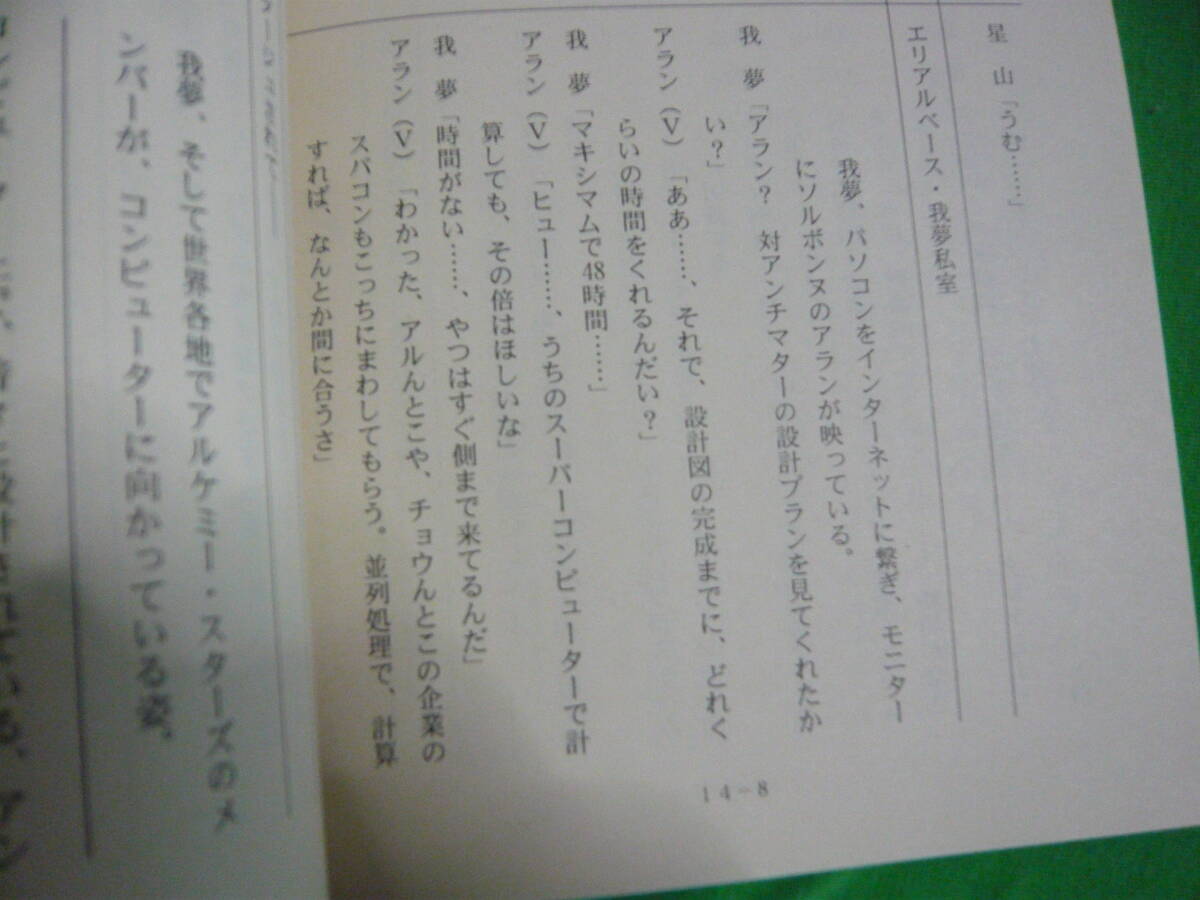 星　山「うむ……」
エリアルベース・我夢私室
我夢、パソコンをインターネットに繋ぎ、モニター
にソルボンヌのアランが映っている。
我　夢「アラン？　対アンチマターの設計プランを見てくれたか
い？」
アラン（V）「ああ……、それで、設計図の完成までに、どれく
らいの時間をくれるんだい？」
我　夢「マキシマムで48時間……」
アラン（V）「ヒュー……、うちのスーパーコンピューターで計
算しても、その倍はほしいな」
我　夢「時間がない……、やつはすぐ側まで来てるんだ」
アラン（V）「わかった、アルんとこや、チョウんとこの企業の
スパコンもこっちにまわしてもらう。並列処理で、計算
すれば、なんとか間に合うさ」
14－8
我夢、そして世界各地でアルケミー・スターズのメ
ンバーが、コンピューターに向かっている姿。
設計されている、アン